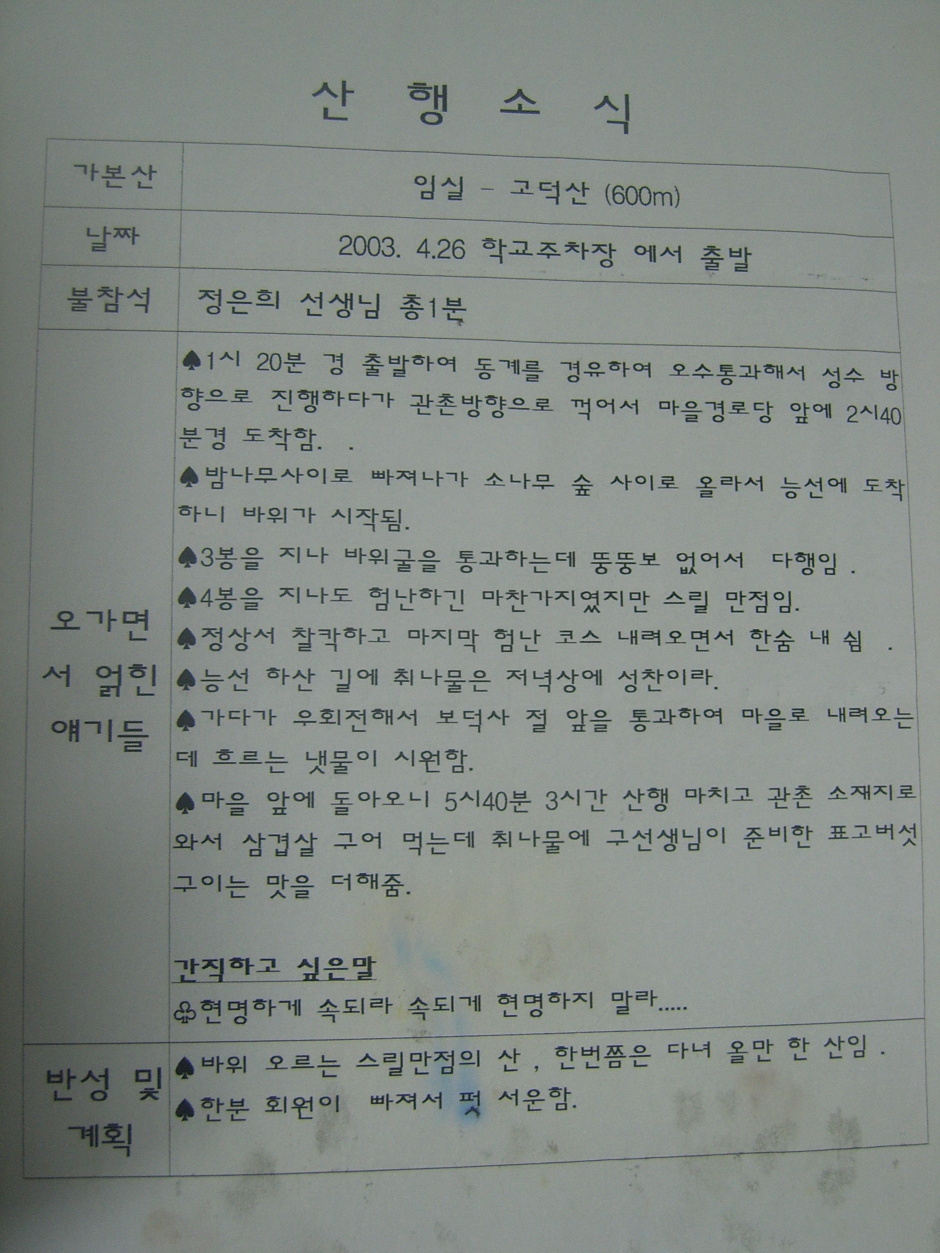 산 행 소 식
가본산
임실 - 고덕산 (600m)
날짜
2003. 4.26 학교주차장 에서 출발
불참석
정은희 선생님 총1분
오가면
서 얽힌
얘기들
♠1시 20분 경 출발하여 동계를 경유하여 오수통과해서 성수 방
향으로 진행하다가 관촌방향으로 꺽어서 마을경로당 앞에 2시40
분경 도착함. .
♠밤나무사이로 빠져나가 소나무 숲 사이로 올라서 능선에 도착
하니 바위가 시작됨.
♠3봉을 지나 바위굴을 통과하는데 뚱뚱보 없어서 다행임 .
♠4봉을 지나도 험난하긴 마찬가지였지만 스릴 만점임.
♠정상서 찰칵하고 마지막 험난 코스 내려오면서 한숨 내 쉼 .
♠능선 하산 길에 취나물은 저녁상에 성찬이라.
♠가다가 우회전해서 보덕사 절 앞을 통과하여 마을로 내려오는
데 흐르는 냇물이 시원함.
♠마을 앞에 돌아오니 5시40분 3시간 산행 마치고 관촌 소재지로
와서 삼겹살 구어 먹는데 취나물에 구선생님이 준비한 표고버섯
구이는 맛을 더해줌.
간직하고 싶은말
♧현명하게 속되라 속되게 현명하지 말라.....
반성 및
계획
♠바위 오르는 스릴만점의 산 , 한번쯤은 다녀 올만 한 산임 .
♠한분 회원이 빠져서 펏 서운함.